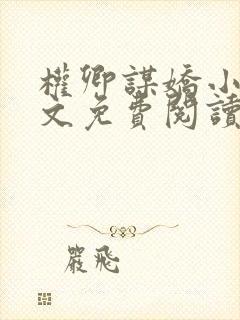 權卿謀嬌小
文免費閱讀
嚴飛